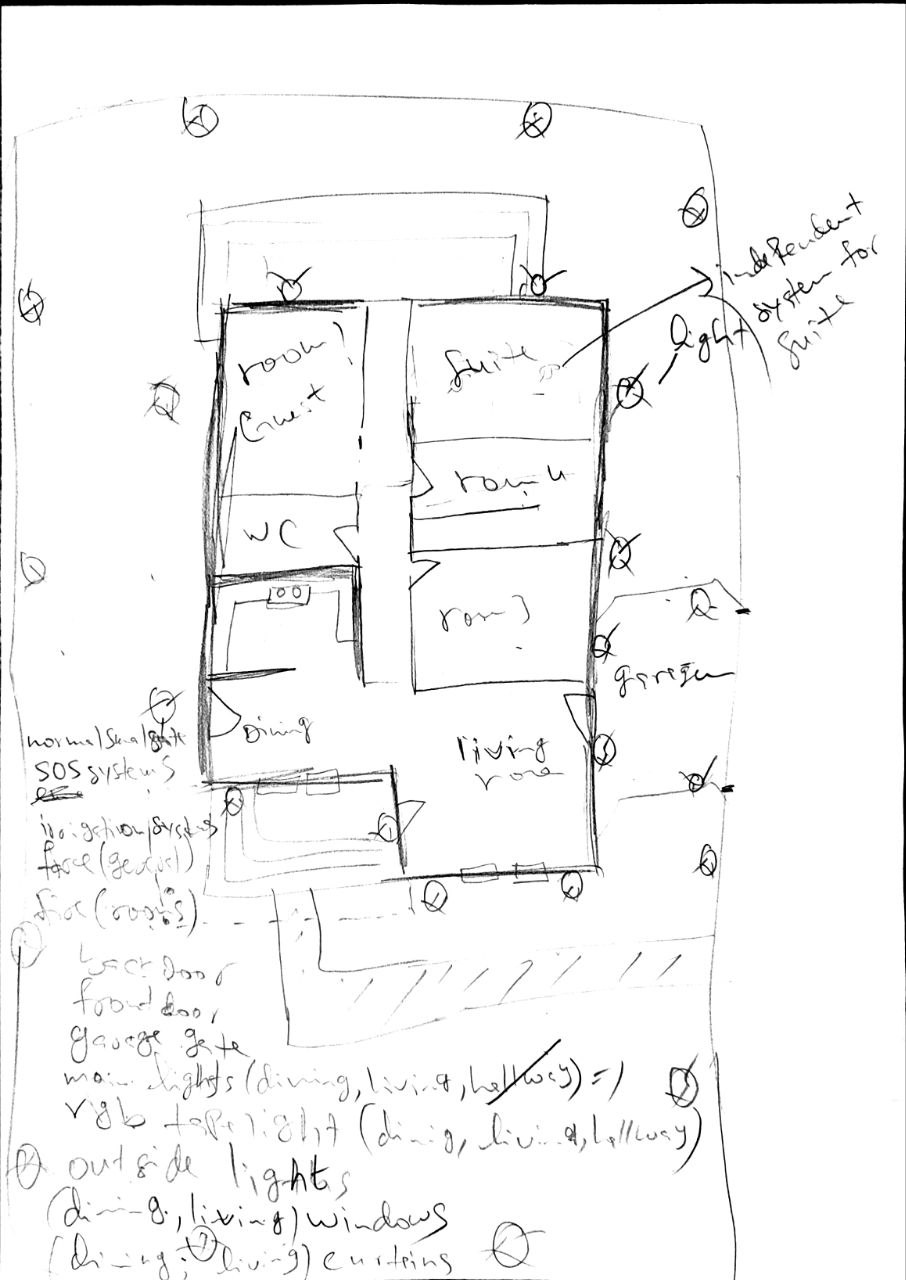 indePendent
light system for
Suite
room 1
Guest
Suite
room 4
WC
room 3
garage
Dining
living
room
normal small gate
SOS systemS
irrigation system
(rooms)
back Door
front door
garage gate
main lights (dining, living, hallway) = 1
light (dining, living, hallway)
outside lights
(dining, living) windows
(dining, living) curtains